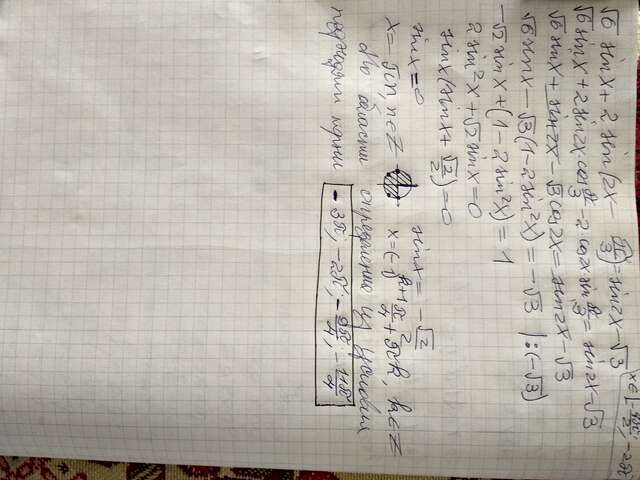 √6 sinx + 2 sin(2x - π/3) = sin2x - √3 x∈[-
√6 sinx + 2 sin2x cos π/3 - 2 cos2x sin π/3 = sin2x - √3
√6 sinx + sin2x - √3 cos2x = sin2x - √3
√6 sinx - √3(1 - 2sin²x) = -√3 | :(-√3)
-√2 sinx + (1 - 2sin²x) = 1
2 sin²x + √2 sinx = 0
sinx(sinx + √2/2) = 0
sinx = 0 sinx = -√2/2
x = πn, n∈Z x = (-1)^{k+1} π/4 + πk, k∈Z
По области определения из условия
подходят корни -3π; -2π; -9π/4; -11π/4